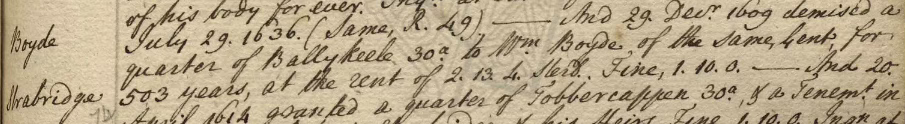 of his body for ever.
Boyde July 29. 1636. (Same, R. 49) — And 29. Decr. 1609 demised a
quarter of Ballykeele 30a. to Wm Boyde, of the Same, Gent, for
Strabridge 503 years, at the rent of 2. 13. 4. Sterls. Fine, 1. 10. 0. — And 20.
April 1614 granted a quarter of Tobbercappen 30a, & a Tenemt. in
his Heirs, Fine 1. 10. 0.